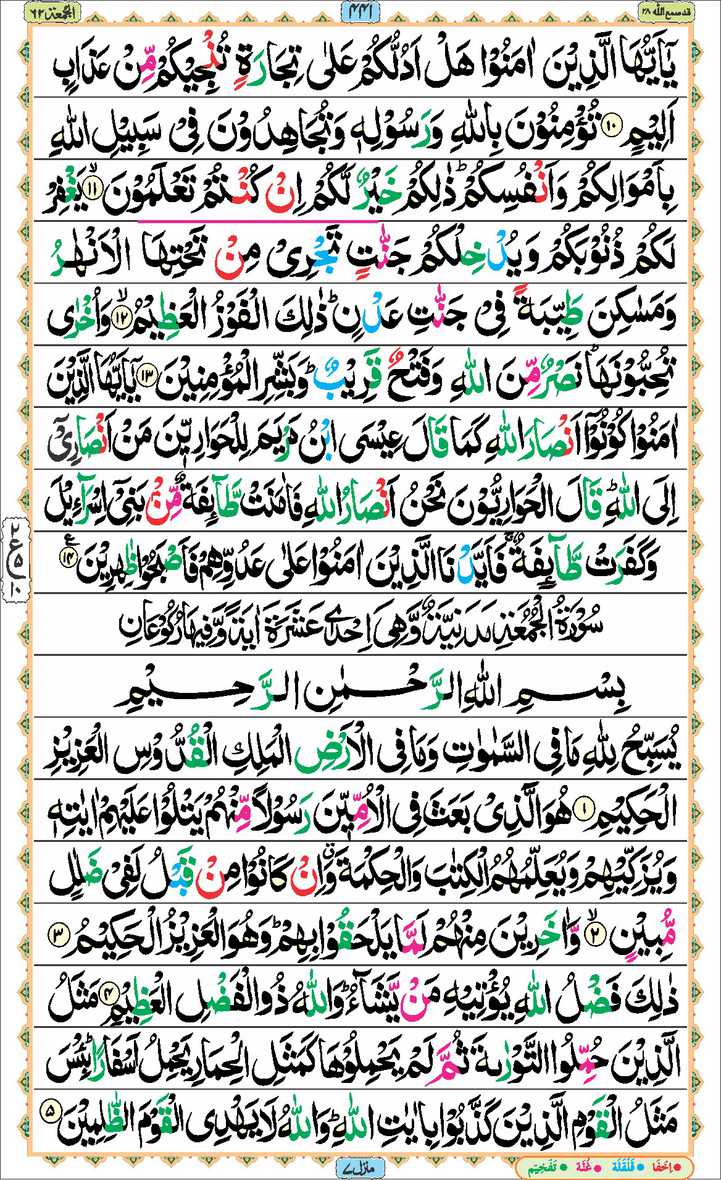 قد سمع الله ٢٨
٤٤١
الجمعة ٦٢
يٰۤاَيُّهَا الَّذِيْنَ اٰمَنُوْا هَلْ اَدُلُّكُمْ عَلٰى تِجَارَةٍ تُنْجِيْكُمْ مِّنْ عَذَابٍ
اَلِيْمٍ ١٠ تُؤْمِنُوْنَ بِاللّٰهِ وَرَسُوْلِهٖ وَتُجَاهِدُوْنَ فِيْ سَبِيْلِ اللّٰهِ
بِاَمْوَالِكُمْ وَاَنْفُسِكُمْ ؕ ذٰلِكُمْ خَيْرٌ لَّكُمْ اِنْ كُنْتُمْ تَعْلَمُوْنَ ۙ ١١ يَغْفِرْ
لَكُمْ ذُنُوْبَكُمْ وَيُدْخِلْكُمْ جَنّٰتٍ تَجْرِيْ مِنْ تَحْتِهَا الْاَنْهٰرُ
وَمَسٰكِنَ طَيِّبَةً فِيْ جَنّٰتِ عَدْنٍ ؕ ذٰلِكَ الْفَوْزُ الْعَظِيْمُ ۙ ١٢ وَاُخْرٰى
تُحِبُّوْنَهَا ؕ نَصْرٌ مِّنَ اللّٰهِ وَفَتْحٌ قَرِيْبٌ ؕ وَبَشِّرِ الْمُؤْمِنِيْنَ ١٣ يٰۤاَيُّهَا الَّذِيْنَ
اٰمَنُوْا كُوْنُوْۤا اَنْصَارَ اللّٰهِ كَمَا قَالَ عِيْسَى ابْنُ مَرْيَمَ لِلْحَوَارِيّٖنَ مَنْ اَنْصَارِيْۤ
اِلَى اللّٰهِ ؕ قَالَ الْحَوَارِيُّوْنَ نَحْنُ اَنْصَارُ اللّٰهِ فَاٰمَنَتْ طَّآئِفَةٌ مِّنْۢ بَنِيْۤ اِسْرَآءِيْلَ
وَكَفَرَتْ طَّآئِفَةٌ ۚ فَاَيَّدْنَا الَّذِيْنَ اٰمَنُوْا عَلٰى عَدُوِّهِمْ فَاَصْبَحُوْا ظٰهِرِيْنَ ١٤ ع
سُوْرَةُ الْجُمُعَةِ مَدَنِيَّةٌ وَّهِيَ اِحْدٰى عَشَرَةَ اٰيَةً وَّفِيْهَا رُكُوْعَانِ
بِسْمِ اللّٰهِ الرَّحْمٰنِ الرَّحِيْمِ
يُسَبِّحُ لِلّٰهِ مَا فِي السَّمٰوٰتِ وَمَا فِي الْاَرْضِ الْمَلِكِ الْقُدُّوْسِ الْعَزِيْزِ
الْحَكِيْمِ ١ هُوَ الَّذِيْ بَعَثَ فِي الْاُمِّيّٖنَ رَسُوْلًا مِّنْهُمْ يَتْلُوْا عَلَيْهِمْ اٰيٰتِهٖ
وَيُزَكِّيْهِمْ وَيُعَلِّمُهُمُ الْكِتٰبَ وَالْحِكْمَةَ ۗ وَاِنْ كَانُوْا مِنْ قَبْلُ لَفِيْ ضَلٰلٍ
مُّبِيْنٍ ۙ ٢ وَّاٰخَرِيْنَ مِنْهُمْ لَمَّا يَلْحَقُوْا بِهِمْ ؕ وَهُوَ الْعَزِيْزُ الْحَكِيْمُ ٣
ذٰلِكَ فَضْلُ اللّٰهِ يُؤْتِيْهِ مَنْ يَّشَآءُ ؕ وَاللّٰهُ ذُو الْفَضْلِ الْعَظِيْمِ ٤ مَثَلُ
الَّذِيْنَ حُمِّلُوا التَّوْرٰىةَ ثُمَّ لَمْ يَحْمِلُوْهَا كَمَثَلِ الْحِمَارِ يَحْمِلُ اَسْفَارًا ؕ بِئْسَ
مَثَلُ الْقَوْمِ الَّذِيْنَ كَذَّبُوْا بِاٰيٰتِ اللّٰهِ ؕ وَاللّٰهُ لَا يَهْدِي الْقَوْمَ الظّٰلِمِيْنَ ٥
منزل ٧
اِخْفَا قَلْقَلَة غُنَّة تَفْخِيْم